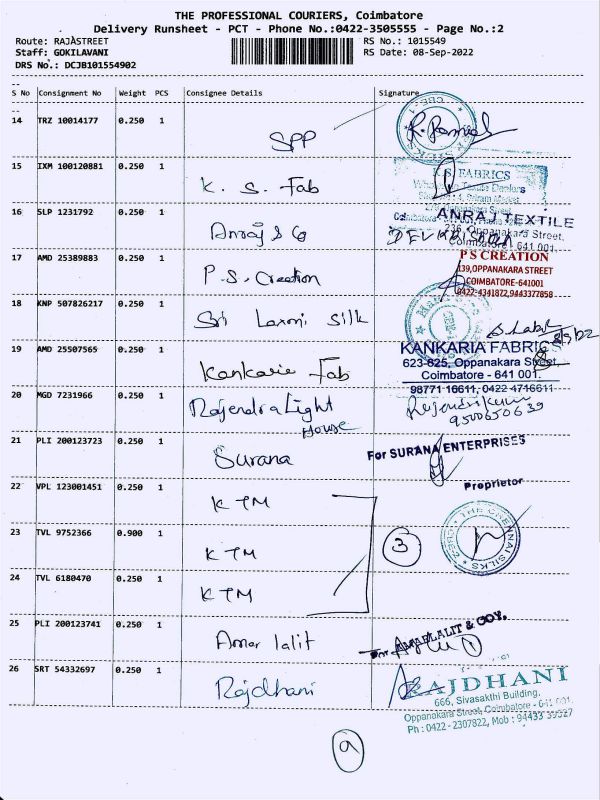 THE PROFESSIONAL COURIERS, Coimbatore
Delivery Runsheet - PCT - Phone No.:0422-3505555 - Page No.:2
Route: RAJASTREET
Staff: GOKILAVANI
DRS No.: DCJB101554902
RS No.: 1015549
RS Date: 08-Sep-2022
S No Consignment No Weight PCS Consignee Details Signature
14 TRZ 10014177 0.250 1 SPP
15 IXM 100120881 0.250 1 K. S. Fab
K.S FABRICS
16 SLP 1231792 0.250 1 Anraj & Co
ANRAJ TEXTILE
236, Oppanakara Street,
Coimbatore - 641 001.
17 AMD 25389883 0.250 1 P.S. Creation
P S CREATION
139,OPPANAKARA STREET
COIMBATORE-641001
0422-4341872,9443377858
18 KNP 507826217 0.250 1 Sri Laxmi Silk
19 AMD 25507565 0.250 1 Kankaria Fab
KANKARIA FABRICS
623-625, Oppanakara Street,
Coimbatore - 641 001.
98771 16611, 0422 4716611
20 MGD 7231966 0.250 1 Rajendra Light House
9500650639
21 PLI 200123723 0.250 1 Surana
For SURANA ENTERPRISES
Proprietor
22 VPL 123001451 0.250 1 KTM
23 TVL 9752366 0.900 1 KTM
3
THE CHENNAI SILKS
24 TVL 6180470 0.250 1 KTM
25 PLI 200123741 0.250 1 Amar lalit
For AMARLALIT & COY.
26 SRT 54332697 0.250 1 Rajdhani
RAJDHANI
666, Sivasakthi Building,
Oppanakara Street, Coimbatore - 641 001.
Ph : 0422 - 2307822, Mob : 94433 39527